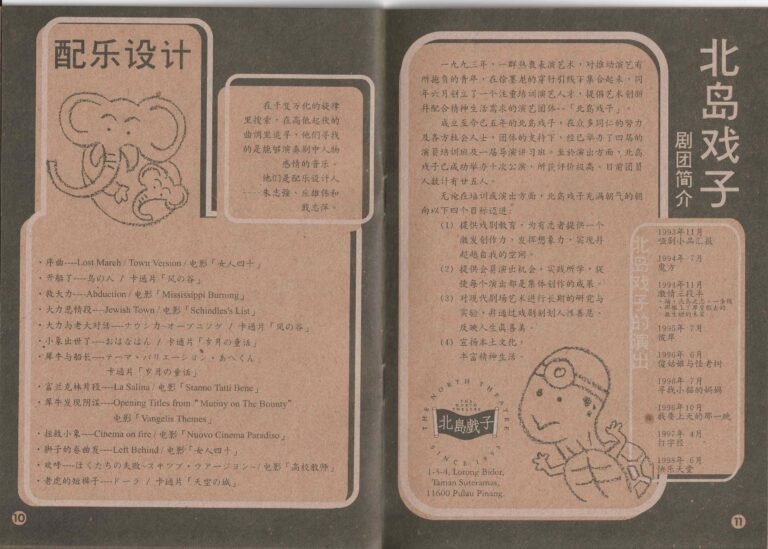 配乐设计
在千变万化的旋律
里搜索，在高低起伏的
曲调里追寻，他们寻找
的是能够演奏剧中人物
感情的音乐。
他们是配乐设计人
——朱志强、丘雄伟和
戴志萍。
・序曲----Lost March / Town Version / 电影「女人四十」
・开船了----鸟の人 / 卡通片「风の谷」
・救大力----Abduction / 电影「Mississippi Burning」
・大力思情段----Jewish Town / 电影「Schindles's List」
・大力与老大对话----ナウシカ・オープニング / 卡通片「风の谷」
・小象出世了----おはなはん / 卡通片「岁月の童话」
・犀牛与船长----テーマ・バリエーション・あへくん
卡通片「岁月の童话」
・富兰克林片段----La Salina / 电影「Stanno Tatti Bene」
・犀牛发现阴谋----Opening Titles from "Mutiny on The Bounty"
电影「Vangelis Themes」
・拯救小象----Cinema on fire / 电影「Nuovo Cinema Paradiso」
・狮子的卷曲发----Left Behind / 电影「女人四十」
・欢呼----ぼくたちの失敗-スキップ・ヴァージョン-/ 电影「高校教师」
・老虎的短裤子----ドーラ / 卡通片「天空の城」
10
北岛戏子
剧团简介
一九九三年，一群热衷表演艺术，对推动演艺有
所抱负的青年，在徐墨龙的穿针引线下集合起来，同
年六月创立了一个注重培训演艺人才，提倡艺术创新
并配合精神生活需求的演艺团体--「北岛戏子」。
成立至今已五年的北岛戏子，在众多同仁的努力
及各方社会人士、团体的支持下，经已举办了四届的
演员培训班及一届导演讲习班。至於演出方面，北岛
戏子已成功举办十次公演，所获评价极高。目前团员
人数计有廿五人。
无论在培训或演出方面，北岛戏子充满朝气的朝
向以下四个目标迈进：
(1) 提供戏剧教育，为有志者提供一个
激发创作力、发挥想象力，实现并
超越自我的空间。
(2) 提供会员演出机会，实践所学，促
使每个演出都是集体创作的成果。
(3) 对现代剧场艺术进行长期的研究与
实验，并通过戏剧刻划人性善恶、
反映人生真善美。
(4) 宣扬本土文化，
丰富精神生活。
THE NORTH THEATRE
THE NORTH THEATRE
北島戲子
SINCE 1993
1-3-4, Lorong Bidor,
Taman Suteramas,
11600 Pulau Pinang.
北岛戏子的演出
1993年11月
哑剧小品汇报
1994年 7月
魔方
1994年11月
激情三段半
1995年 7月
彼岸
1996年 6月
傻姑娘与怪老树
1996年 7月
寻找小猫的妈妈
1996年10月
我要上天的那一晚
1997年 4月
打字控
1998年 6月
快乐天堂
11